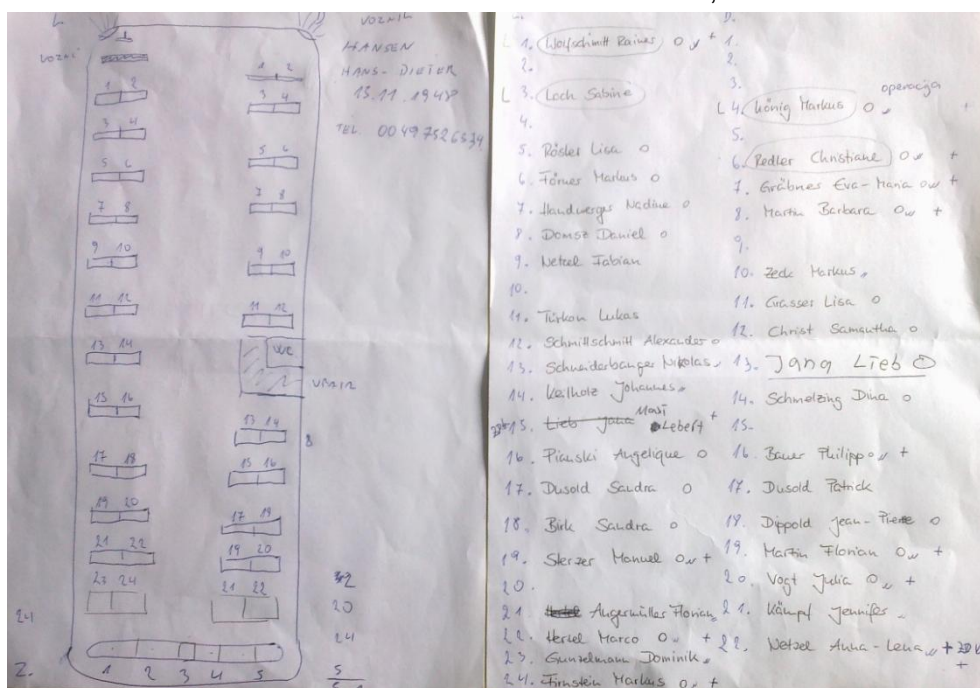 L
VOZNIK
HANSEN
HANS-DIETER
13.11.1948
TEL. 00497526534
1 2
3 4
5 6
7 8
9 10
11 12
13 14
15 16
17 18
19 20
21 22
23 24
1 2
3 4
5 6
7 8
9 10
11 12
WC
13 14
8
15 16
17 18
19 20
21 22
1 2 3 4 5
24
Z.
20
24
5
L 1. Wolfschmitt Rainer O +
2.
L 3. Loch Sabine
4.
5. Rösler Lisa O
6. Förner Markus O
7. Handwerger Nadine O
8. Domsz Daniel O
9. Netzel Fabian
10.
11. Türkon Lukas
12. Schmittschmitt Alexander O
13. Schneiderbanger Nikolas
14. Keilholz Johannes
15. Lieb Jana Lebert +
16. Pianski Angelique O
17. Dusold Sandra O
18. Birk Sandra O
19. Sterzer Manuel O +
20.
21. Angermüller Florian
22. Hertel Marco O +
23. Gunzelmann Dominik
24. Firnstein Markus O +
D.
1.
2.
3.
operacija
L 4. König Markus O +
5.
6. Redler Christiane O +
7. Gräbner Eva-Maria O +
8. Martin Barbara O +
9.
10. Zeck Markus
11. Grasser Lisa O
12. Christ Samantha O
13. Jana Lieb O
14. Schmelzing Dina O
15.
16. Bauer Philipp O +
17. Dusold Patrick
18. Dippold Jean-Pierre O
19. Martin Florian O +
20. Vogt Julia O +
21. Kämpf Jennifer
22. Netzel Anna-Lena +
+